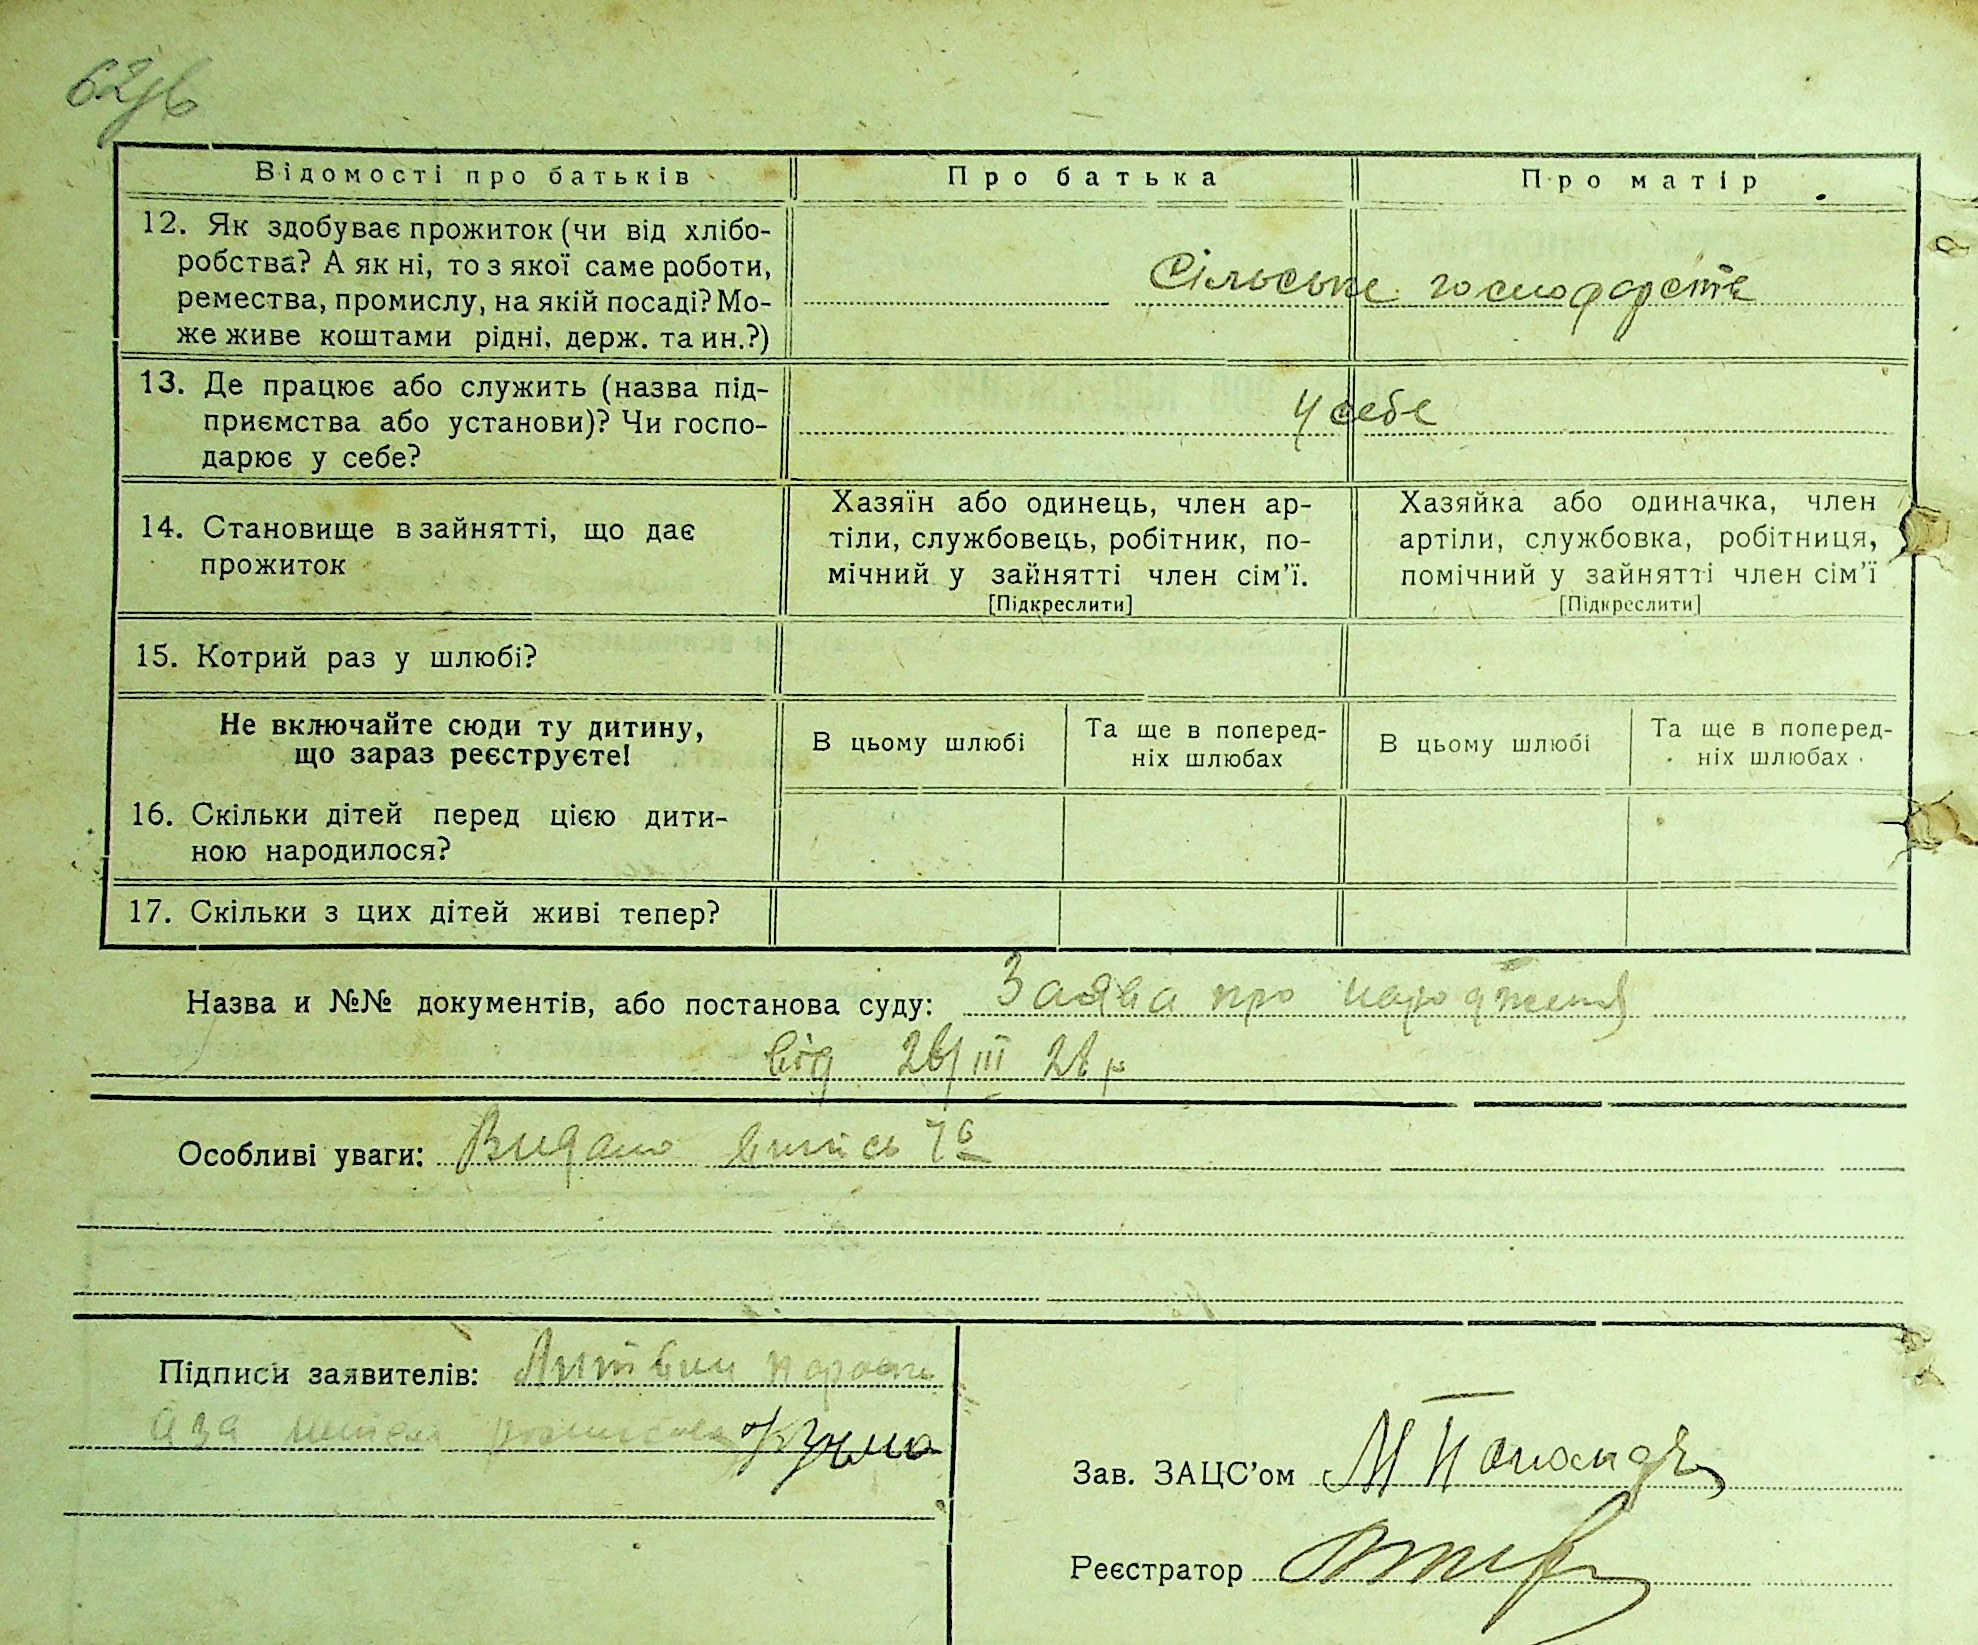 Відомості про батьків
Про батька
Про матір
12. Як здобуває прожиток (чи від хлібо-
робства? А як ні, то з якої саме роботи,
ремества, промислу, на якій посаді? Мо-
же живе коштами рідні, держ. та ин.?)
Сільське господарств
13. Де працює або служить (назва під-
приємства або установи)? Чи госпо-
дарює у себе?
у себе
14. Становище в зайнятті, що дає
прожиток
Хазяїн або одинець, член ар-
тіли, службовець, робітник, по-
мічний у зайнятті член сім'ї.
[Підкреслити]
Хазяйка або одиначка, член
артіли, службовка, робітниця,
помічний у зайнятті член сім'ї
[Підкреслити]
15. Котрий раз у шлюбі?
Не включайте сюди ту дитину,
що зараз реєструєте!
В цьому шлюбі
Та ще в поперед-
ніх шлюбах
В цьому шлюбі
Та ще в поперед-
ніх шлюбах
16. Скільки дітей перед цією дити-
ною народилося?
17. Скільки з цих дітей живі тепер?
Назва и №№ документів, або постанова суду: Заява про народження
від 26/III 28 р
Особливі уваги: Видано випись
Підписи заявителів: Литвин
а за
Зав. ЗАЦС'ом
Реєстратор